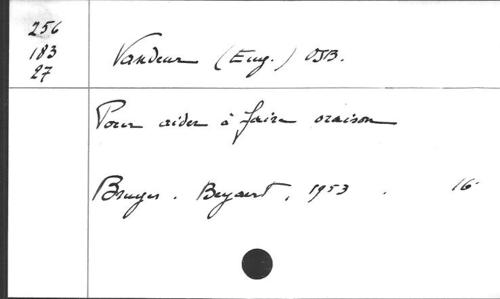 256
183
27
Vandeur (Eug.) OSB.
Pour aider à faire oraison
Bruges. Beyaert, 1953. 16°